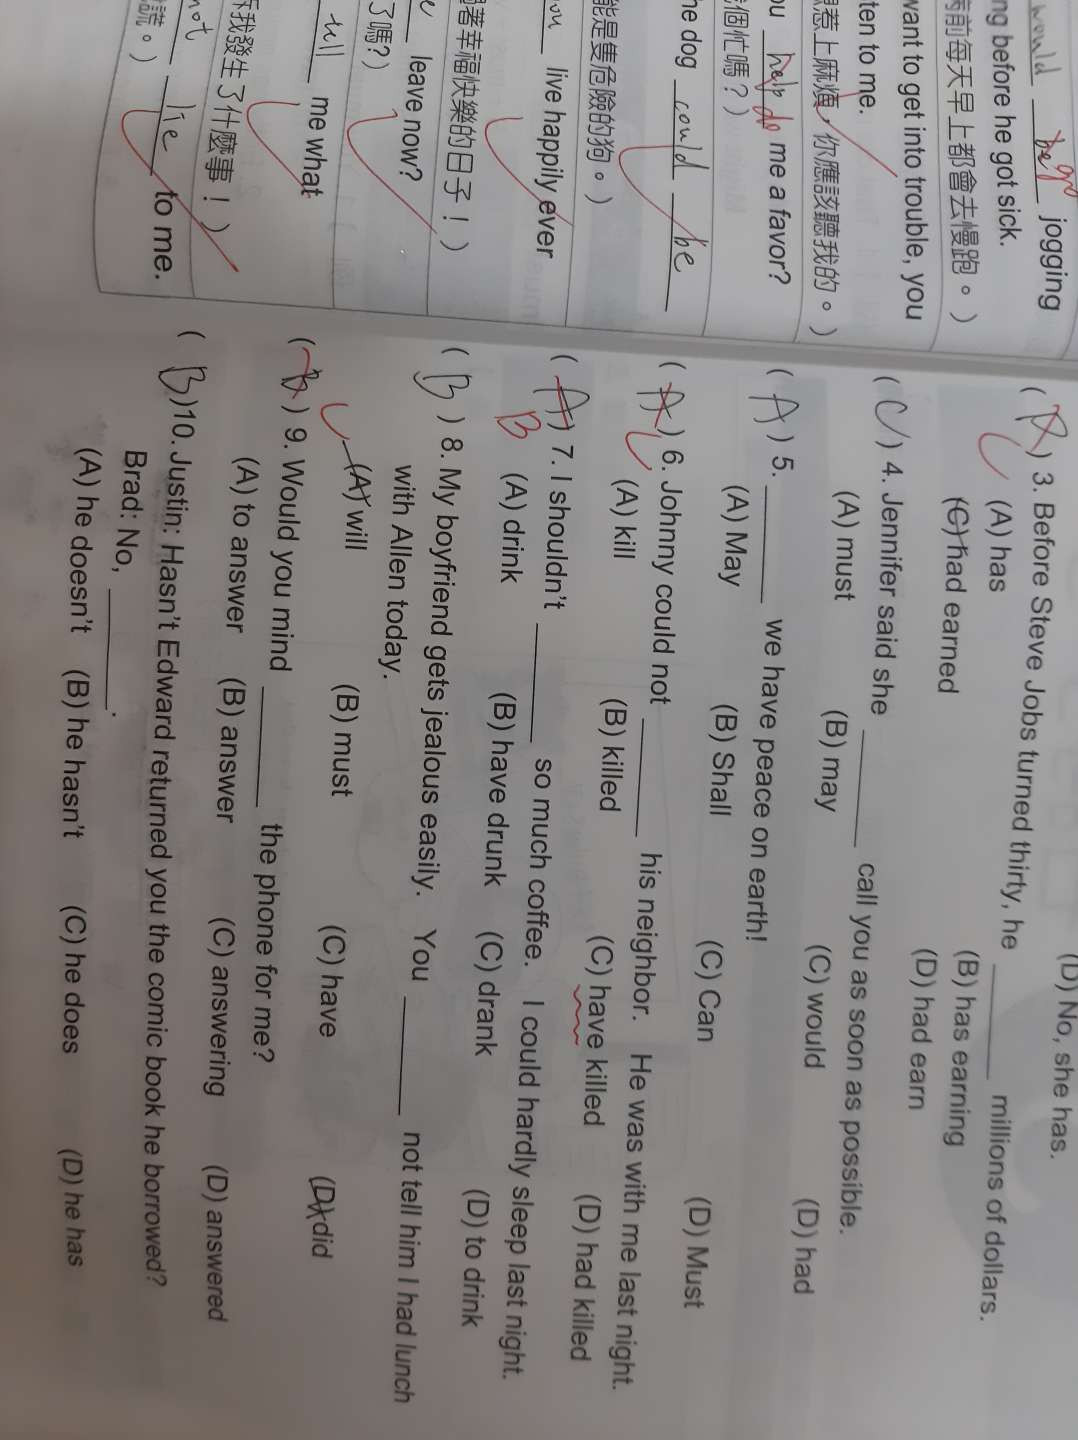 would bego jogging
ng before he got sick.
病前每天早上都會去慢跑。）
want to get into trouble, you
ten to me.
惹上麻煩，你應該聽我的。）
ou help do me a favor?
個忙嗎？）
he dog could be
能是隻危險的狗。）
you live happily ever
著幸福快樂的日子！）
leave now?
了嗎?）
tell me what
訴我發生了什麼事！）
not lie to me.
謊。）
(D) No, she has.
( ) 3. Before Steve Jobs turned thirty, he ______ millions of dollars.
(A) has (B) has earning
(C) had earned (D) had earn
( C ) 4. Jennifer said she ______ call you as soon as possible.
(A) must (B) may (C) would (D) had
( A ) 5. ______ we have peace on earth!
(A) May (B) Shall (C) Can (D) Must
( A ) 6. Johnny could not ______ his neighbor. He was with me last night.
C
(A) kill (B) killed (C) have killed (D) had killed
( A ) 7. I shouldn't ______ so much coffee. I could hardly sleep last night.
B
(A) drink (B) have drunk (C) drank (D) to drink
( B ) 8. My boyfriend gets jealous easily. You ______ not tell him I had lunch
with Allen today.
(A) will (B) must (C) have (D) did
( B ) 9. Would you mind ______ the phone for me?
C
(A) to answer (B) answer (C) answering (D) answered
( B ) 10. Justin: Hasn't Edward returned you the comic book he borrowed?
Brad: No, ______.
(A) he doesn't (B) he hasn't (C) he does (D) he has